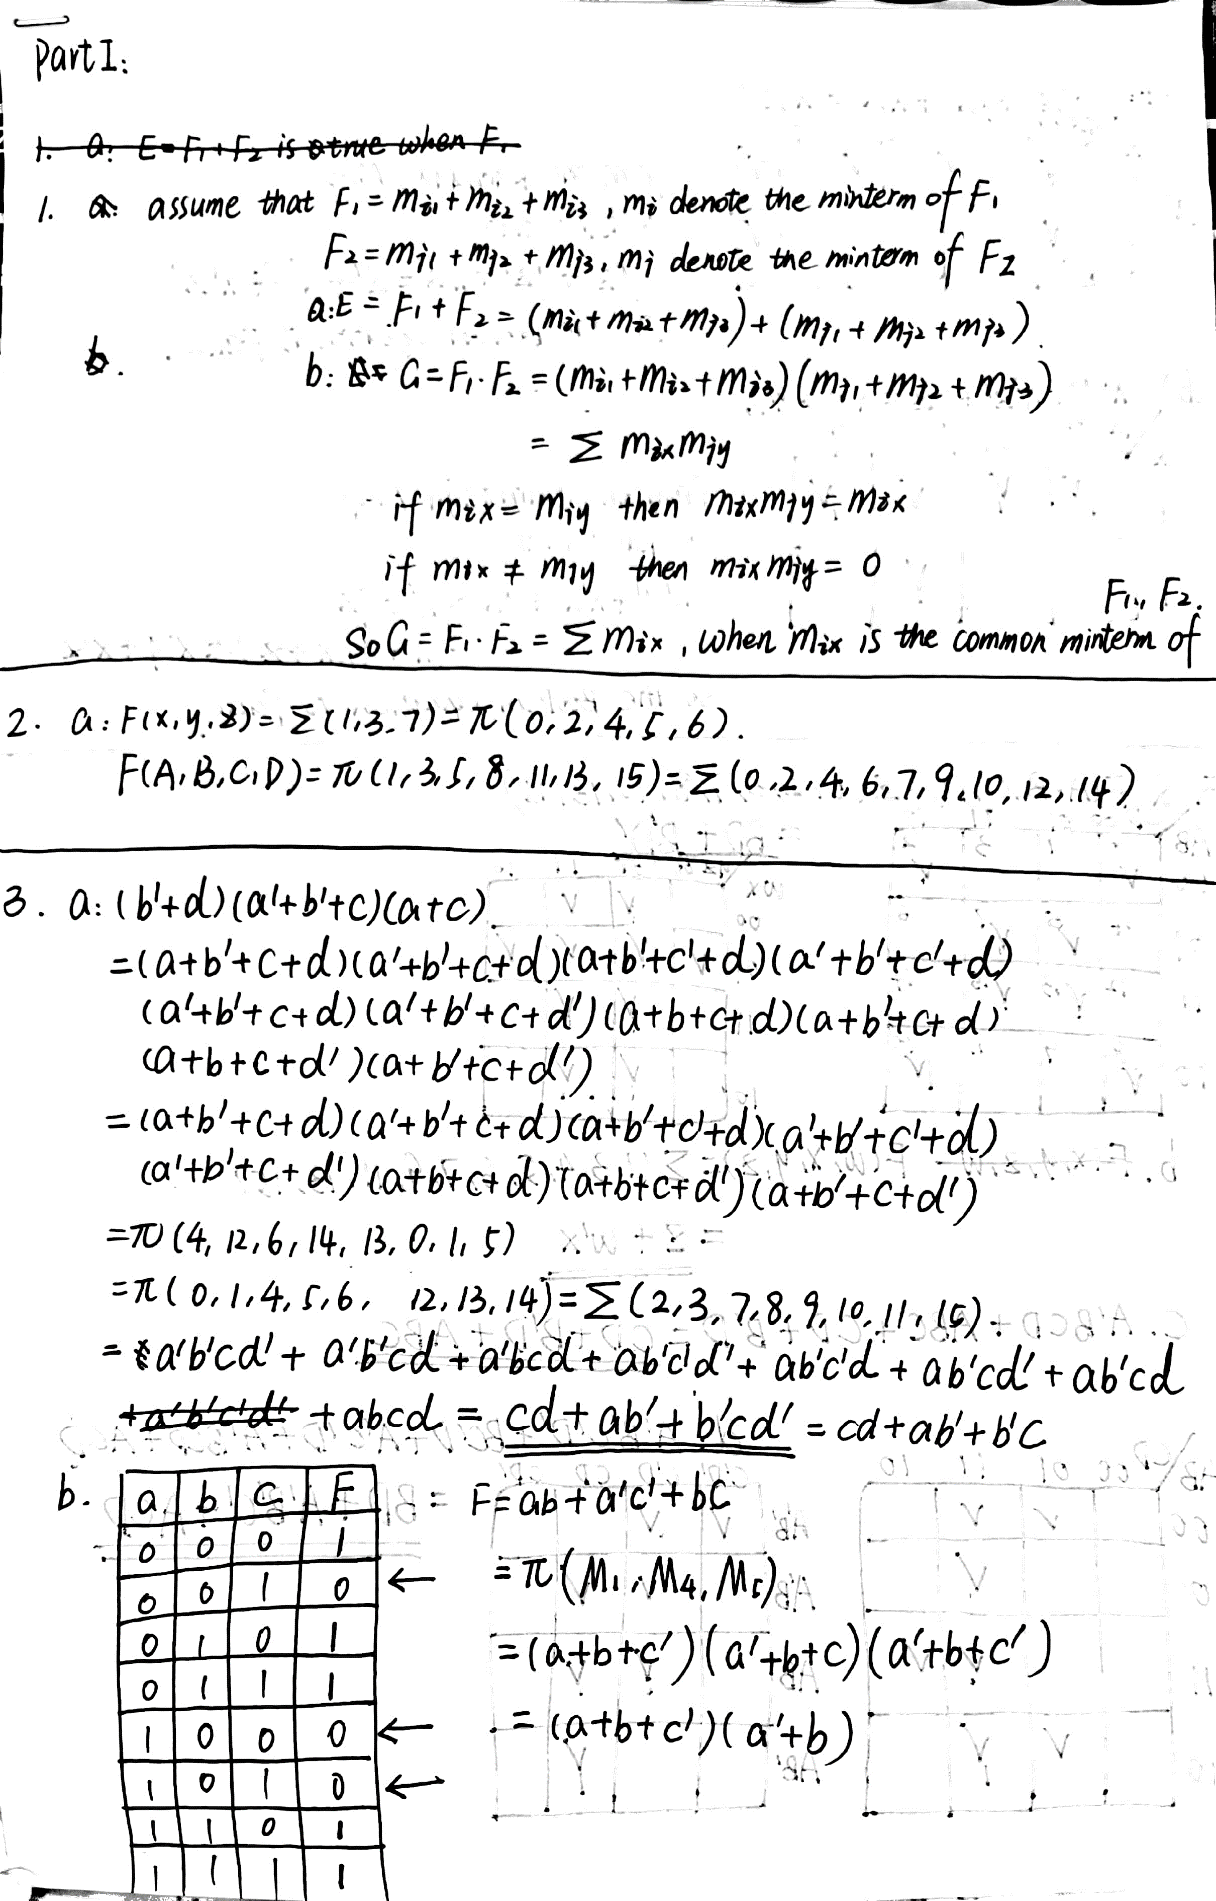 Part I:
1. a: E=F₁+F₂ is true when F₁
1. a: assume that F₁ = mi₁ + mi₂ + mi₃ , mi denote the minterm of F₁
F₂ = mj₁ + mj₂ + mj₃ , mj denote the minterm of F₂
a: E = F₁ + F₂ = (mi₁ + mi₂ + mj₃) + (mj₁ + mj₂ + mj₃).
b.
b: G = F₁·F₂ = (mi₁ + mi₂ + mi₃)(mj₁ + mj₂ + mj₃)
= Σ mix mjy
if mix = mjy then mix mjy = mix
if mix ≠ mjy then mix mjy = 0
So G = F₁·F₂ = Σ mix , when mix is the common minterm of F₁, F₂.
2. a: F(x,y,z) = Σ(1,3,7) = π(0,2,4,5,6).
F(A,B,C,D) = π(1,3,5,8,11,13,15) = Σ(0,2,4,6,7,9,10,12,14)
3. a: (b'+d)(a'+b'+c)(a+c)
=(a+b'+c+d)(a'+b'+c+d)(a+b'+c'+d)(a'+b'+c'+d)
(a'+b'+c+d)(a'+b'+c+d')(a+b+c+d)(a+b'+c+d)
(a+b+c+d')(a+b'+c+d')
=(a+b'+c+d)(a'+b'+c+d)(a+b'+c'+d)(a'+b'+c'+d)
(a'+b'+c+d')(a+b+c+d)(a+b+c+d')(a+b'+c+d')
=π(4, 12, 6, 14, 13, 0, 1, 5)
=π(0,1,4,5,6, 12,13,14) = Σ(2,3,7,8,9,10,11,15).
= a'b'cd' + a'b'cd + a'bcd + ab'c'd' + ab'c'd + ab'cd' + ab'cd
+a'b'c'd' + abcd = cd + ab' + b'cd' = cd + ab' + b'c
b. a b c F = F = ab + a'c' + bc
0 0 0 1
0 0 1 0 ← = π(M₁, M₄, M₅)
0 1 0 1 = (a+b+c')(a'+b+c)(a'+b+c')
0 1 1 1
1 0 0 0 ← = (a+b+c')(a'+b)
1 0 1 0 ←
1 1 0 1
1 1 1 1